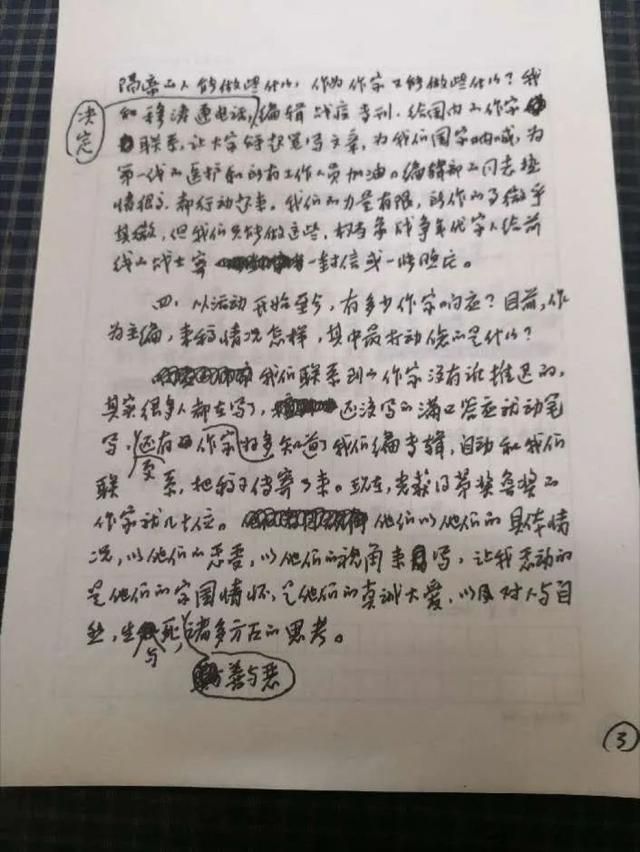 隔离的人能做些什么，作为作家又能做些什么？我
和穆涛通电话，决定编辑战疫专刊，给国内的作家
联系，让大家行起笔写文章，为我们国家呐喊，为
第一线的医护和所有工作人员加油。编辑部的同志热
情很高，都行动起来。我们的力量有限，所作的事微乎
其微，但我们只能做这些，权当是战争年代家人给前
线的战士寄一封信或一些鞋袜。
四、从活动开始至今，有多少作家响应？目前，作
为主编，来稿情况怎样，其中最打动您的是什么？
我们联系到的作家没有谁推迟的，
其实很多人都在写了，还没写的满口答应就动笔
写，还有更多作家知道了我们编专辑，自动和我们
联系，把稿子传寄了来。现在，光获得茅奖鲁奖的
作家就几十位。他们以他们的具体情
况，以他们的感受，以他们的视角来写，让我感动的
是他们的家国情怀，是他们的真诚大爱，以及对人与自
然，生与死，善与恶诸多方面的思考。
3